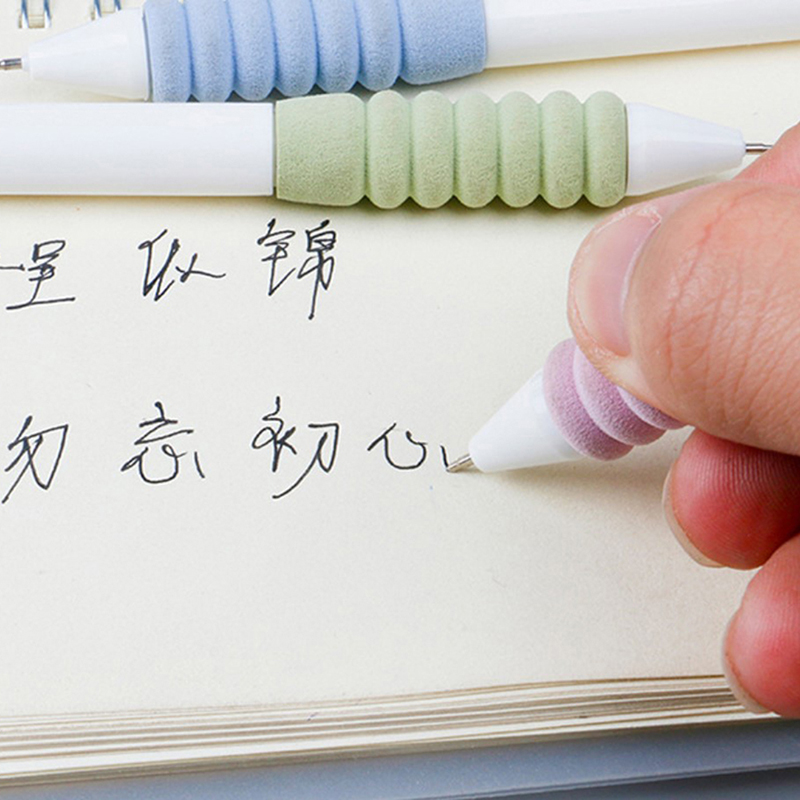 程似锦
勿忘初心